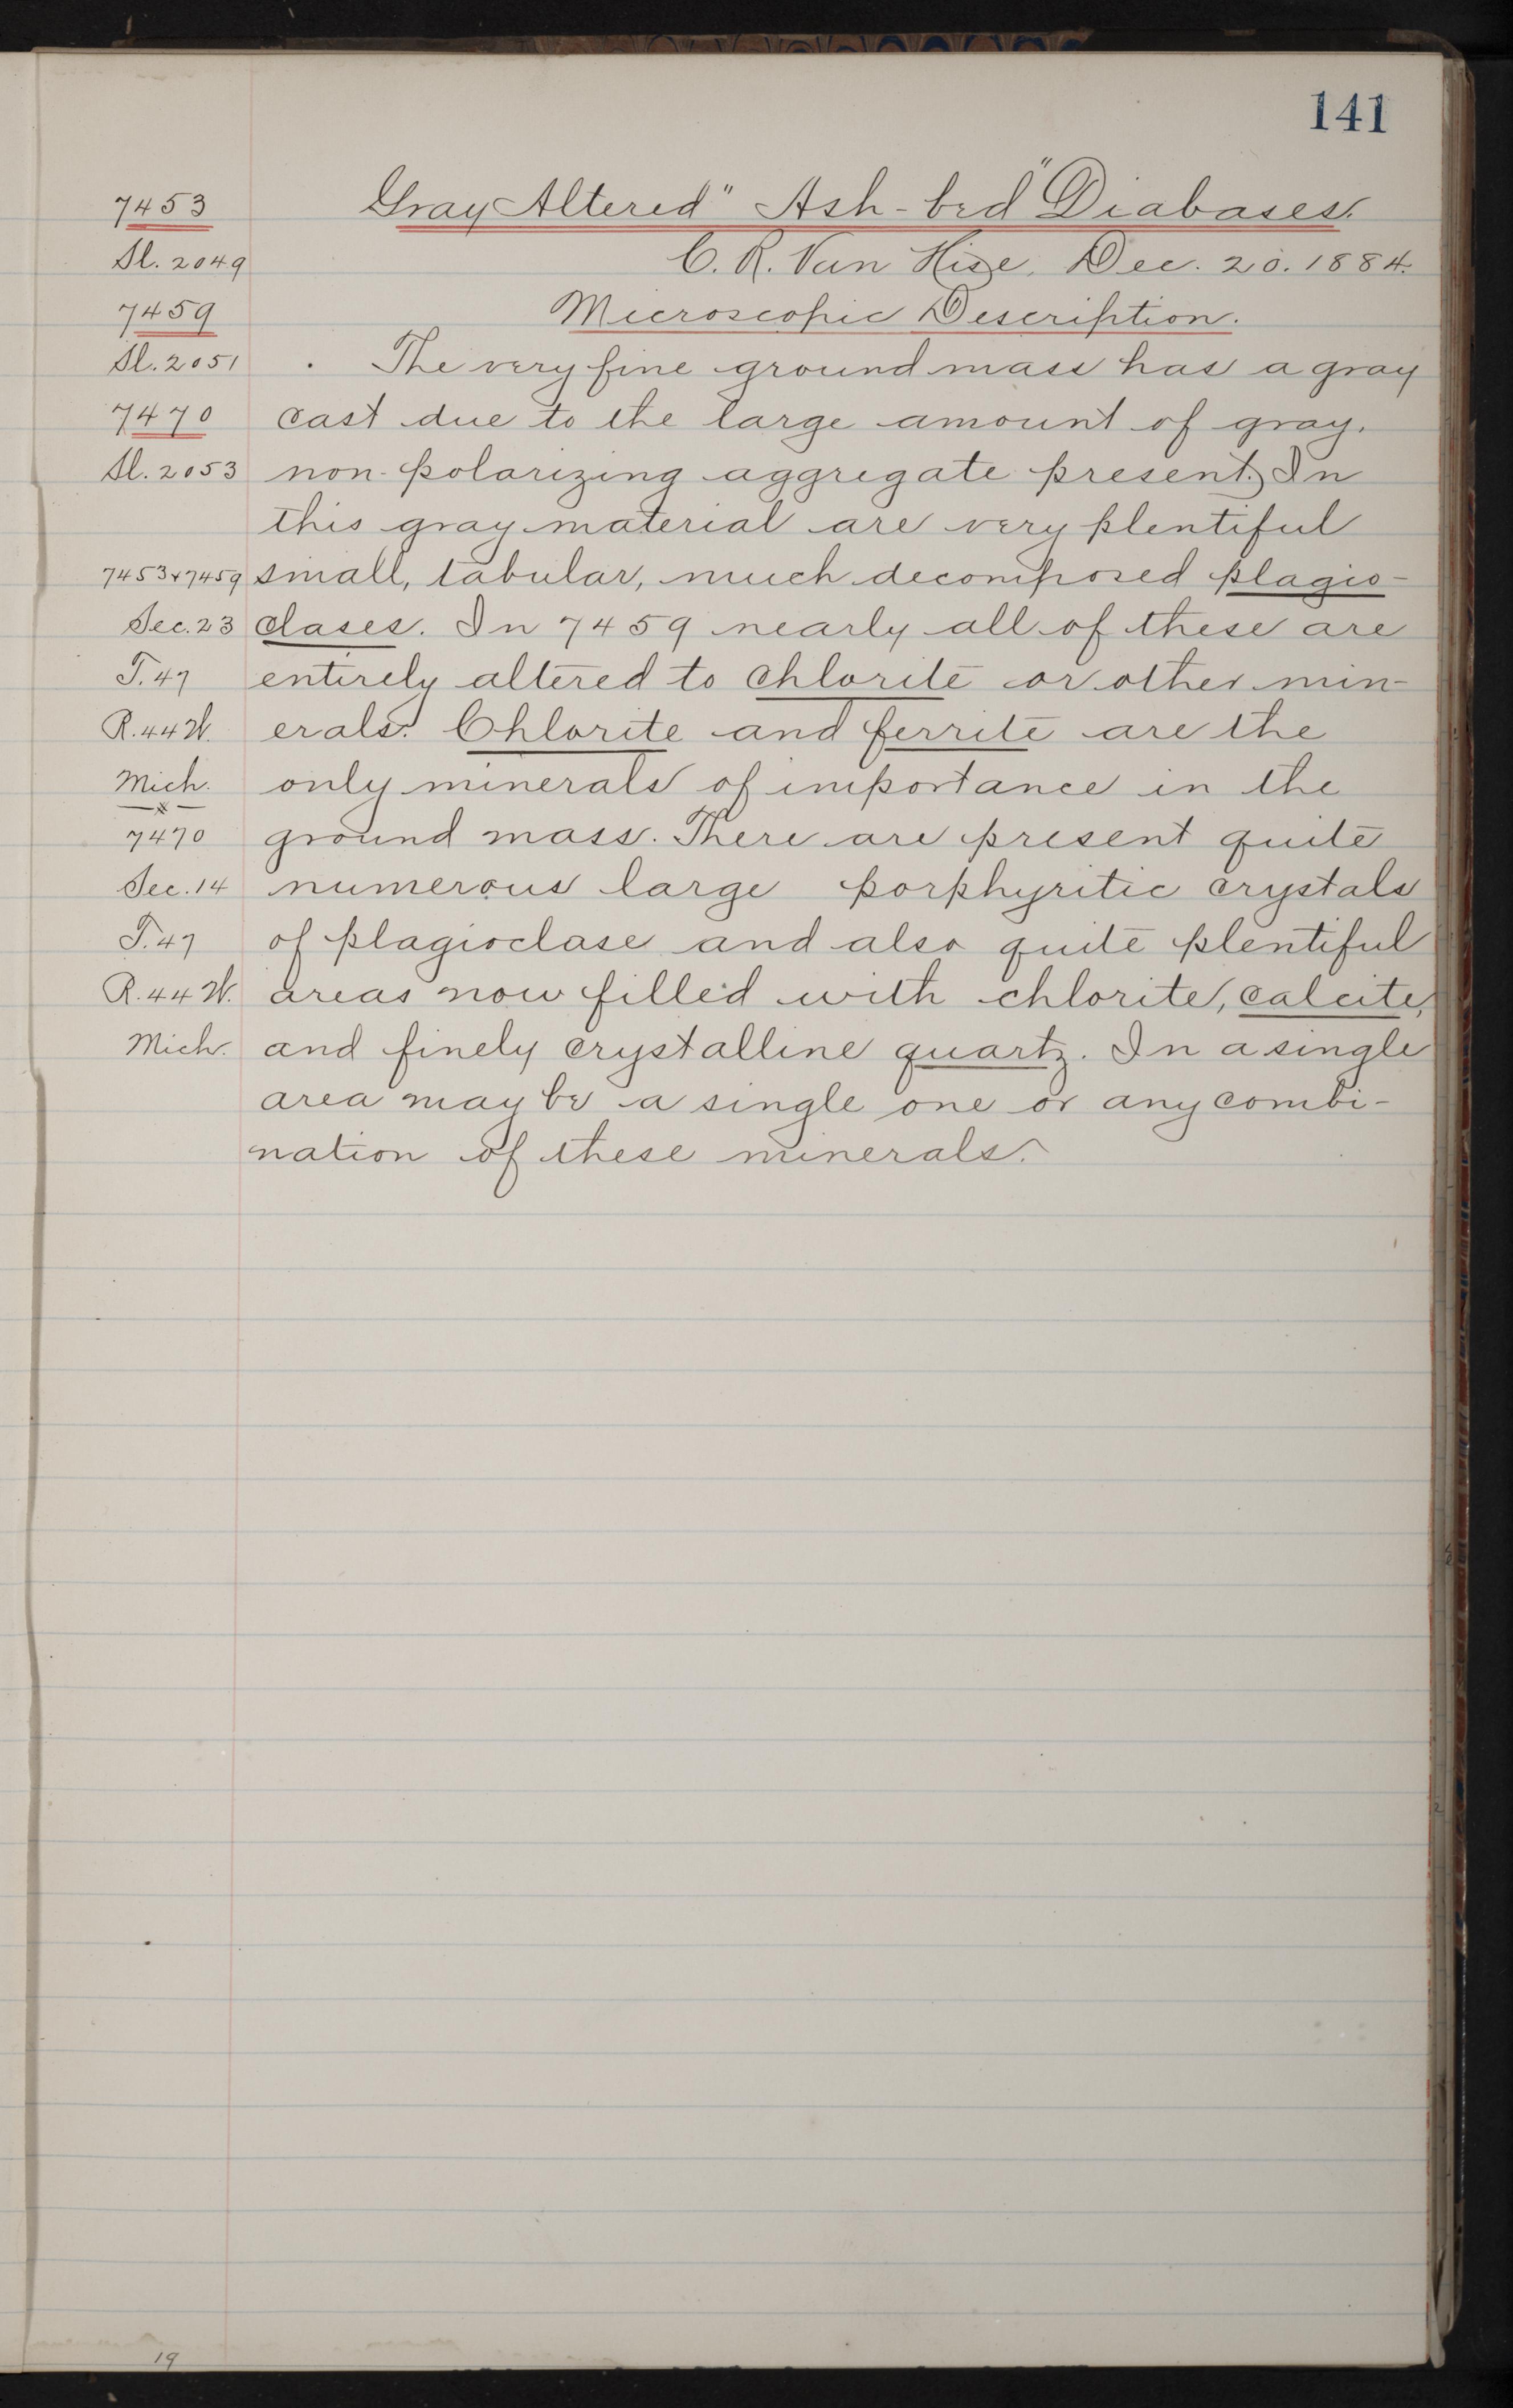 141
7453 Gray Altered "Ash-bed" Diabases.
Sl. 2049 C. R. Van Hise, Dec. 20. 1884.
7459 Microscopic Description.
Sl. 2051 The very fine ground mass has a gray
7470 cast due to the large amount of gray,
Sl. 2053 non-polarizing aggregate present. In
this gray material are very plentiful
7453+7459 small, tabular, much decomposed plagio-
Sec. 23 clases. In 7459 nearly all of these are
T. 47 entirely altered to chlorite or other min-
R. 44 W. erals. Chlorite and ferrite are the
Mich. only minerals of importance in the
7470 ground mass. There are present quite
Sec. 14 numerous large porphyritic crystals
T. 47 of plagioclase and also quite plentiful
R. 44 W. areas now filled with chlorite, calcite,
Mich. and finely crystalline quartz. In a single
area may be a single one or any combi-
nation of these minerals.
19